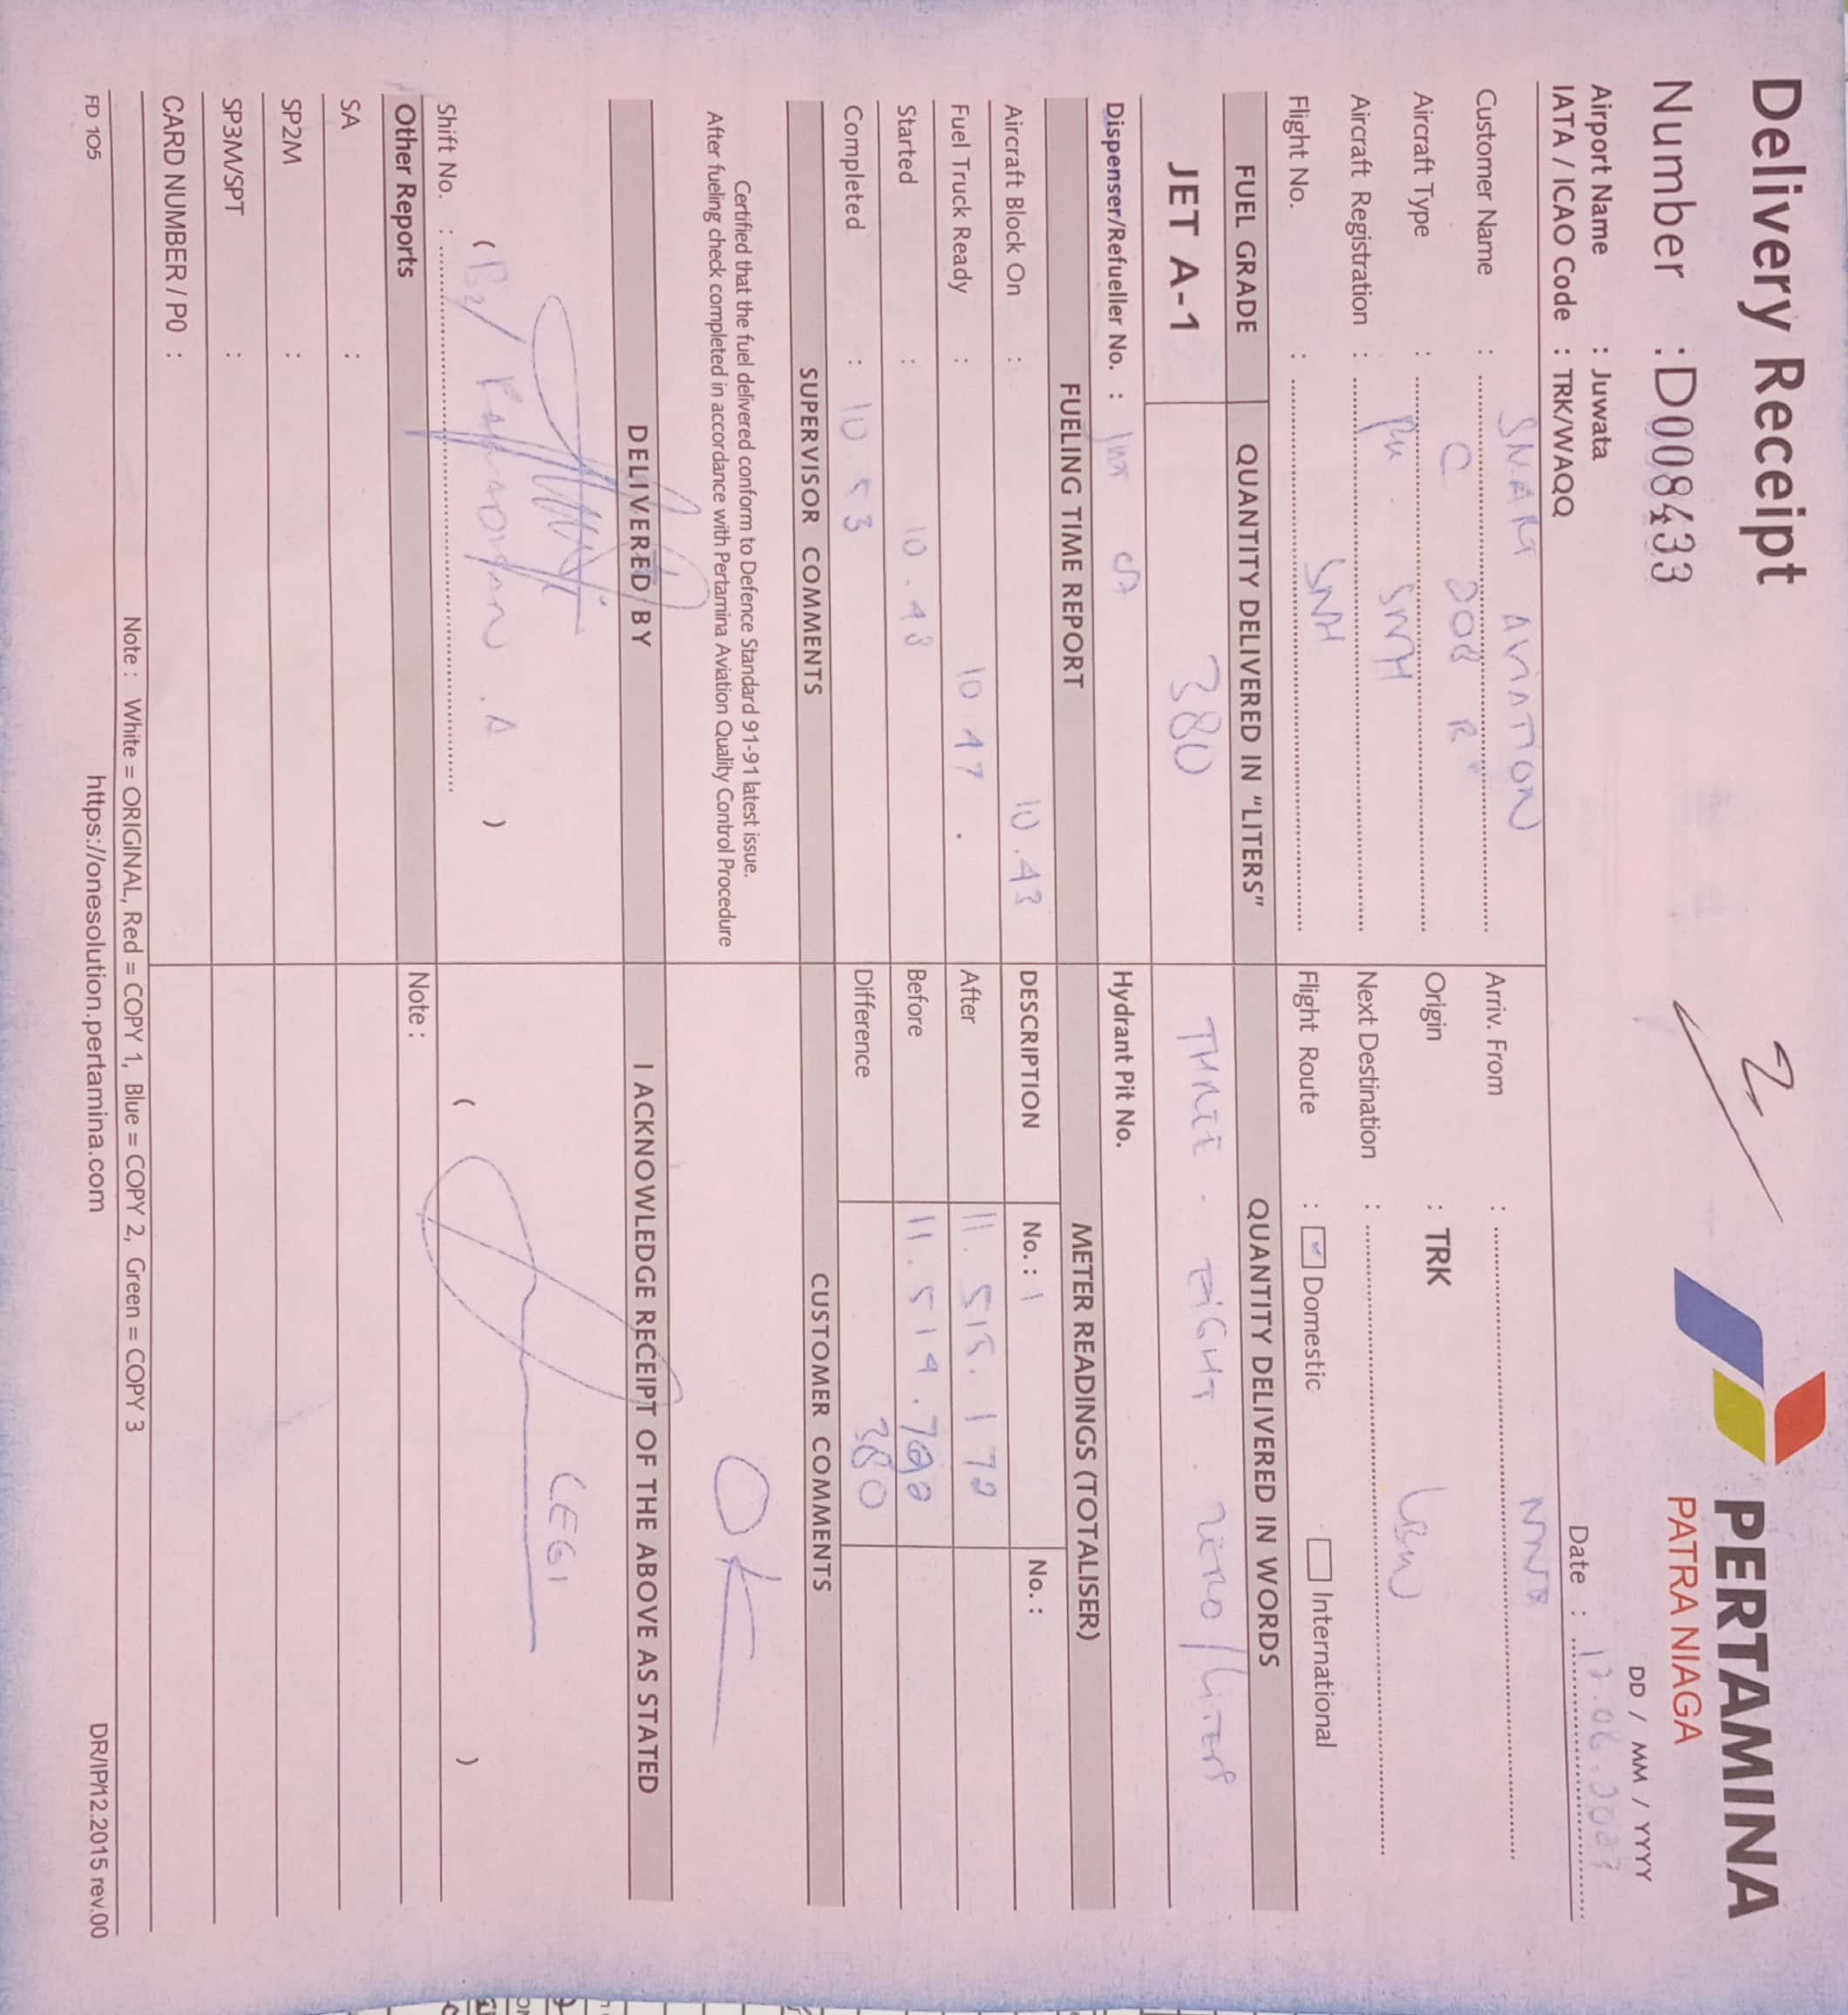 Delivery Receipt
Number : D0084433
2
PERTAMINA
PATRA NIAGA
DD / MM / YYYY
Airport Name : Juwata
IATA / ICAO Code : TRK/WAQQ
Date :
Customer Name : SMART AVIATION
Arriv. From :
Aircraft Type : C 208 B
Origin : TRK
Aircraft Registration : PK SNH
Next Destination :
Flight No. : SNH
Flight Route : Domestic International
FUEL GRADE QUANTITY DELIVERED IN "LITERS" QUANTITY DELIVERED IN WORDS
JET A-1 380 THREE . EIGHT . ZERO / LITERS
Dispenser/Refueller No. : Hydrant Pit No.
FUELING TIME REPORT METER READINGS (TOTALISER)
Aircraft Block On : 10.43 DESCRIPTION No. : 1 No. :
Fuel Truck Ready : 10 47 . After 11.515.172
Started : 10.48 Before 11.514.792
Completed : 10.53 Difference 380
SUPERVISOR COMMENTS CUSTOMER COMMENTS
OK
Certified that the fuel delivered conform to Defence Standard 91-91 latest issue.
After fueling check completed in accordance with Pertamina Aviation Quality Control Procedure
DELIVERED BY I ACKNOWLEDGE RECEIPT OF THE ABOVE AS STATED
( ) ( )
Shift No. :
Other Reports Note :
SA :
SP2M :
SP3M/SPT :
CARD NUMBER / P0 :
Note : White = ORIGINAL, Red = COPY 1, Blue = COPY 2, Green = COPY 3
FD 105 https://onesolution.pertamina.com DR/IP/12.2015 rev.00